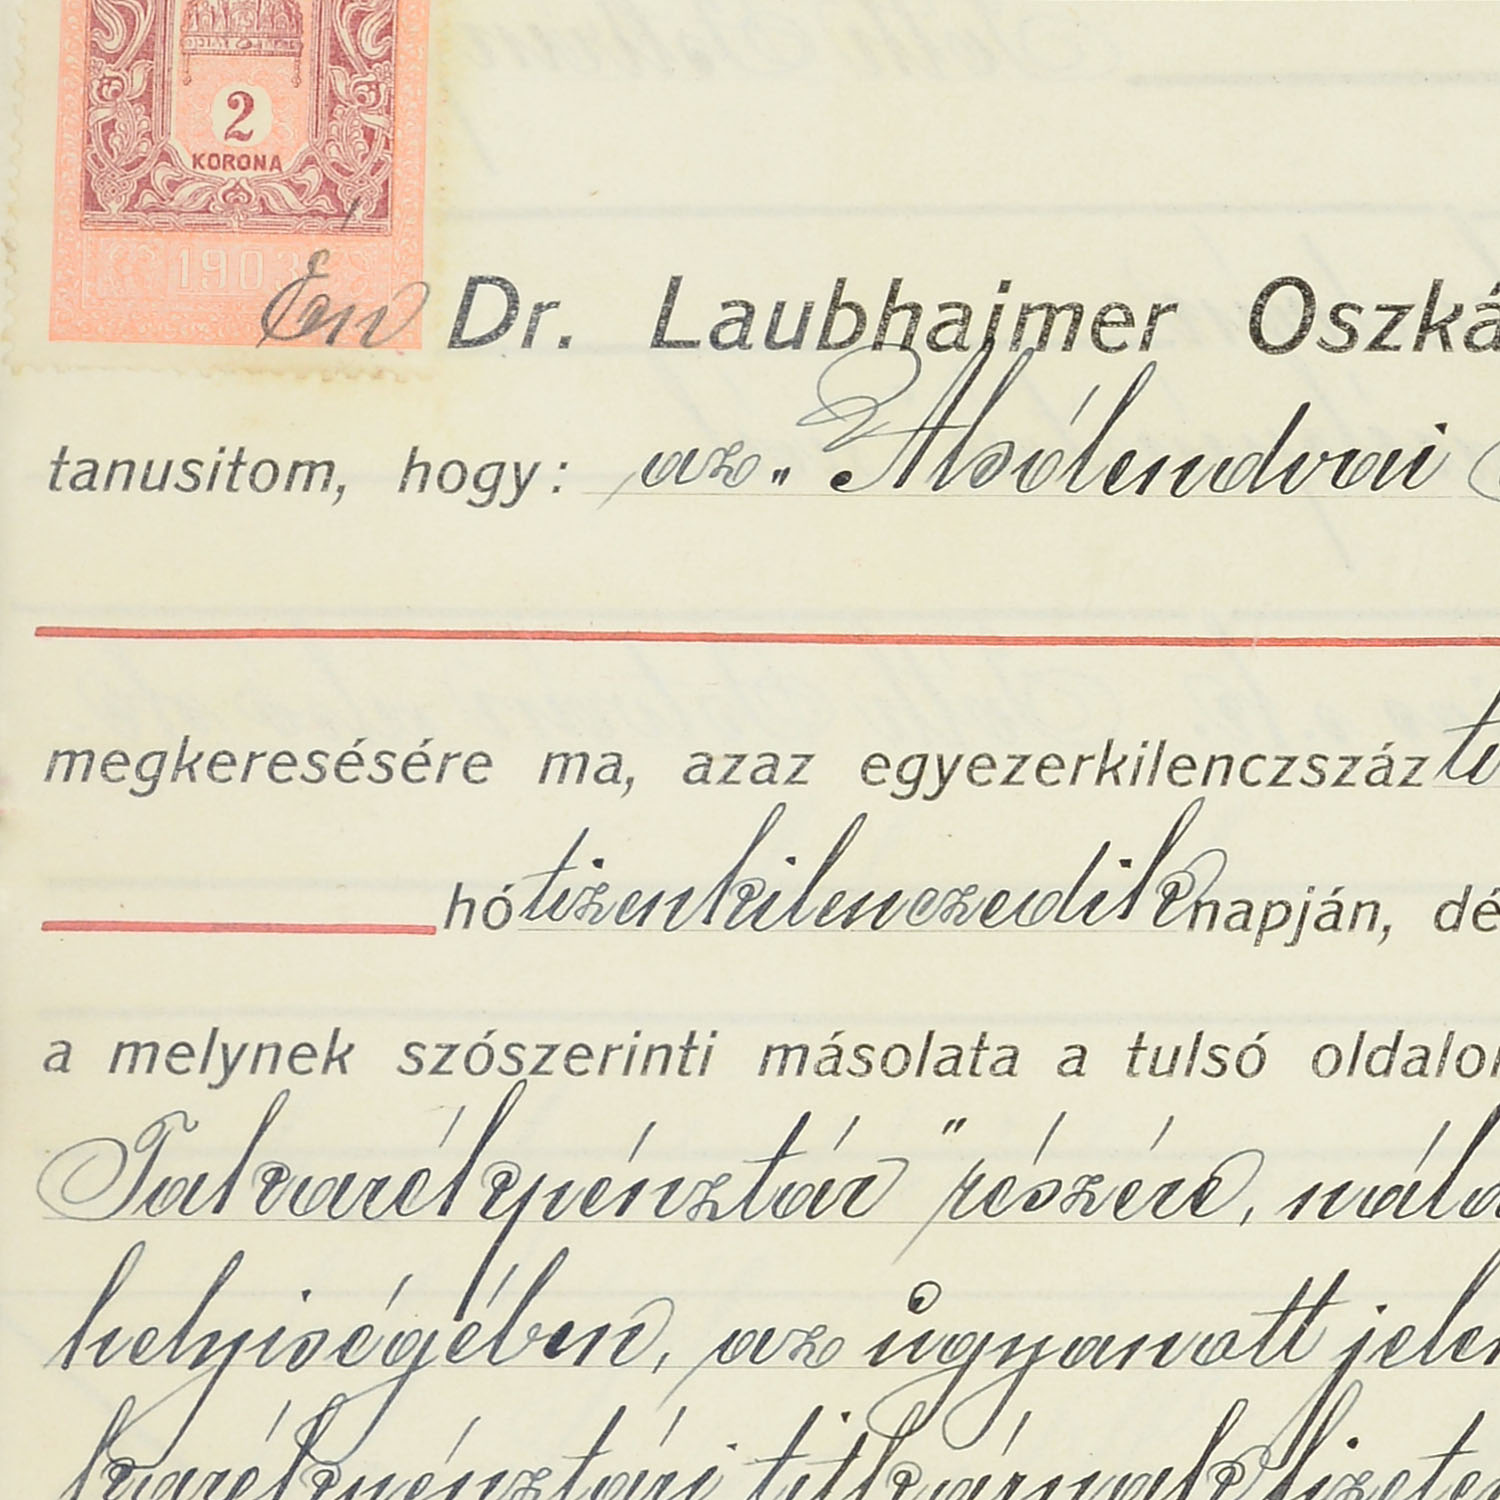 2
KORONA
1903
Én Dr. Laubhaimer Oszká
tanusitom, hogy: az „Alsólendvai
megkeresésére ma, azaz egyezerkilenczszáz ti
hó tizenkilenczedik napján, dé
a melynek szószerinti másolata a tulsó oldalon
Takarékpénztár" részére, nála
helyiségében, az ugyanott jelen
karékpénztári titkárnak fizete